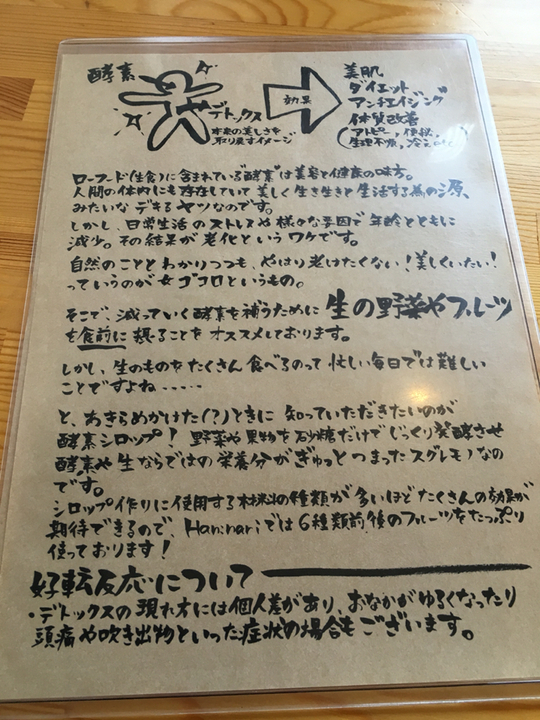 酵素
デトックス
本来の美しさを
取り戻すイメージ
効果
美肌
ダイエット
アンチエイジング
体質改善
(アトピー、便秘、
生理不順、冷えetc)
ローフード(生食)に含まれている"酵素"は美容と健康の味方。
人間の体内にも存在していて美しく生き生きと生活する為の源、
みたいなデキるヤツなのです。
しかし、日常生活のストレスや様々な要因で年齢とともに
減少。その結果が老化というワケです。
自然のこととわかりつつも、やはり老けたくない!美しくいたい!
っていうのが女ゴコロというもの。
そこで、減っていく酵素を補うために生の野菜やフルーツ
を食前に摂ることをオススメしております。
しかし、生のものをたくさん食べるのって忙しい毎日では難しい
ことですよね-----
と、あきらめかけた(?)ときに知っていただきたいのが
酵素シロップ!野菜や果物を砂糖だけでじっくり発酵させ
酵素や生ならではの栄養分がぎゅっとつまったスグレモノなの
です。
シロップ作りに使用する材料の種類が多いほどたくさんの効果が
期待できるので、Hannariでは6種類前後のフルーツをたっぷり
使っております!
好転反応について
・デトックスの現れ方には個人差があり、おなかがゆるくなったり
頭痛や吹き出物といった症状の場合もございます。